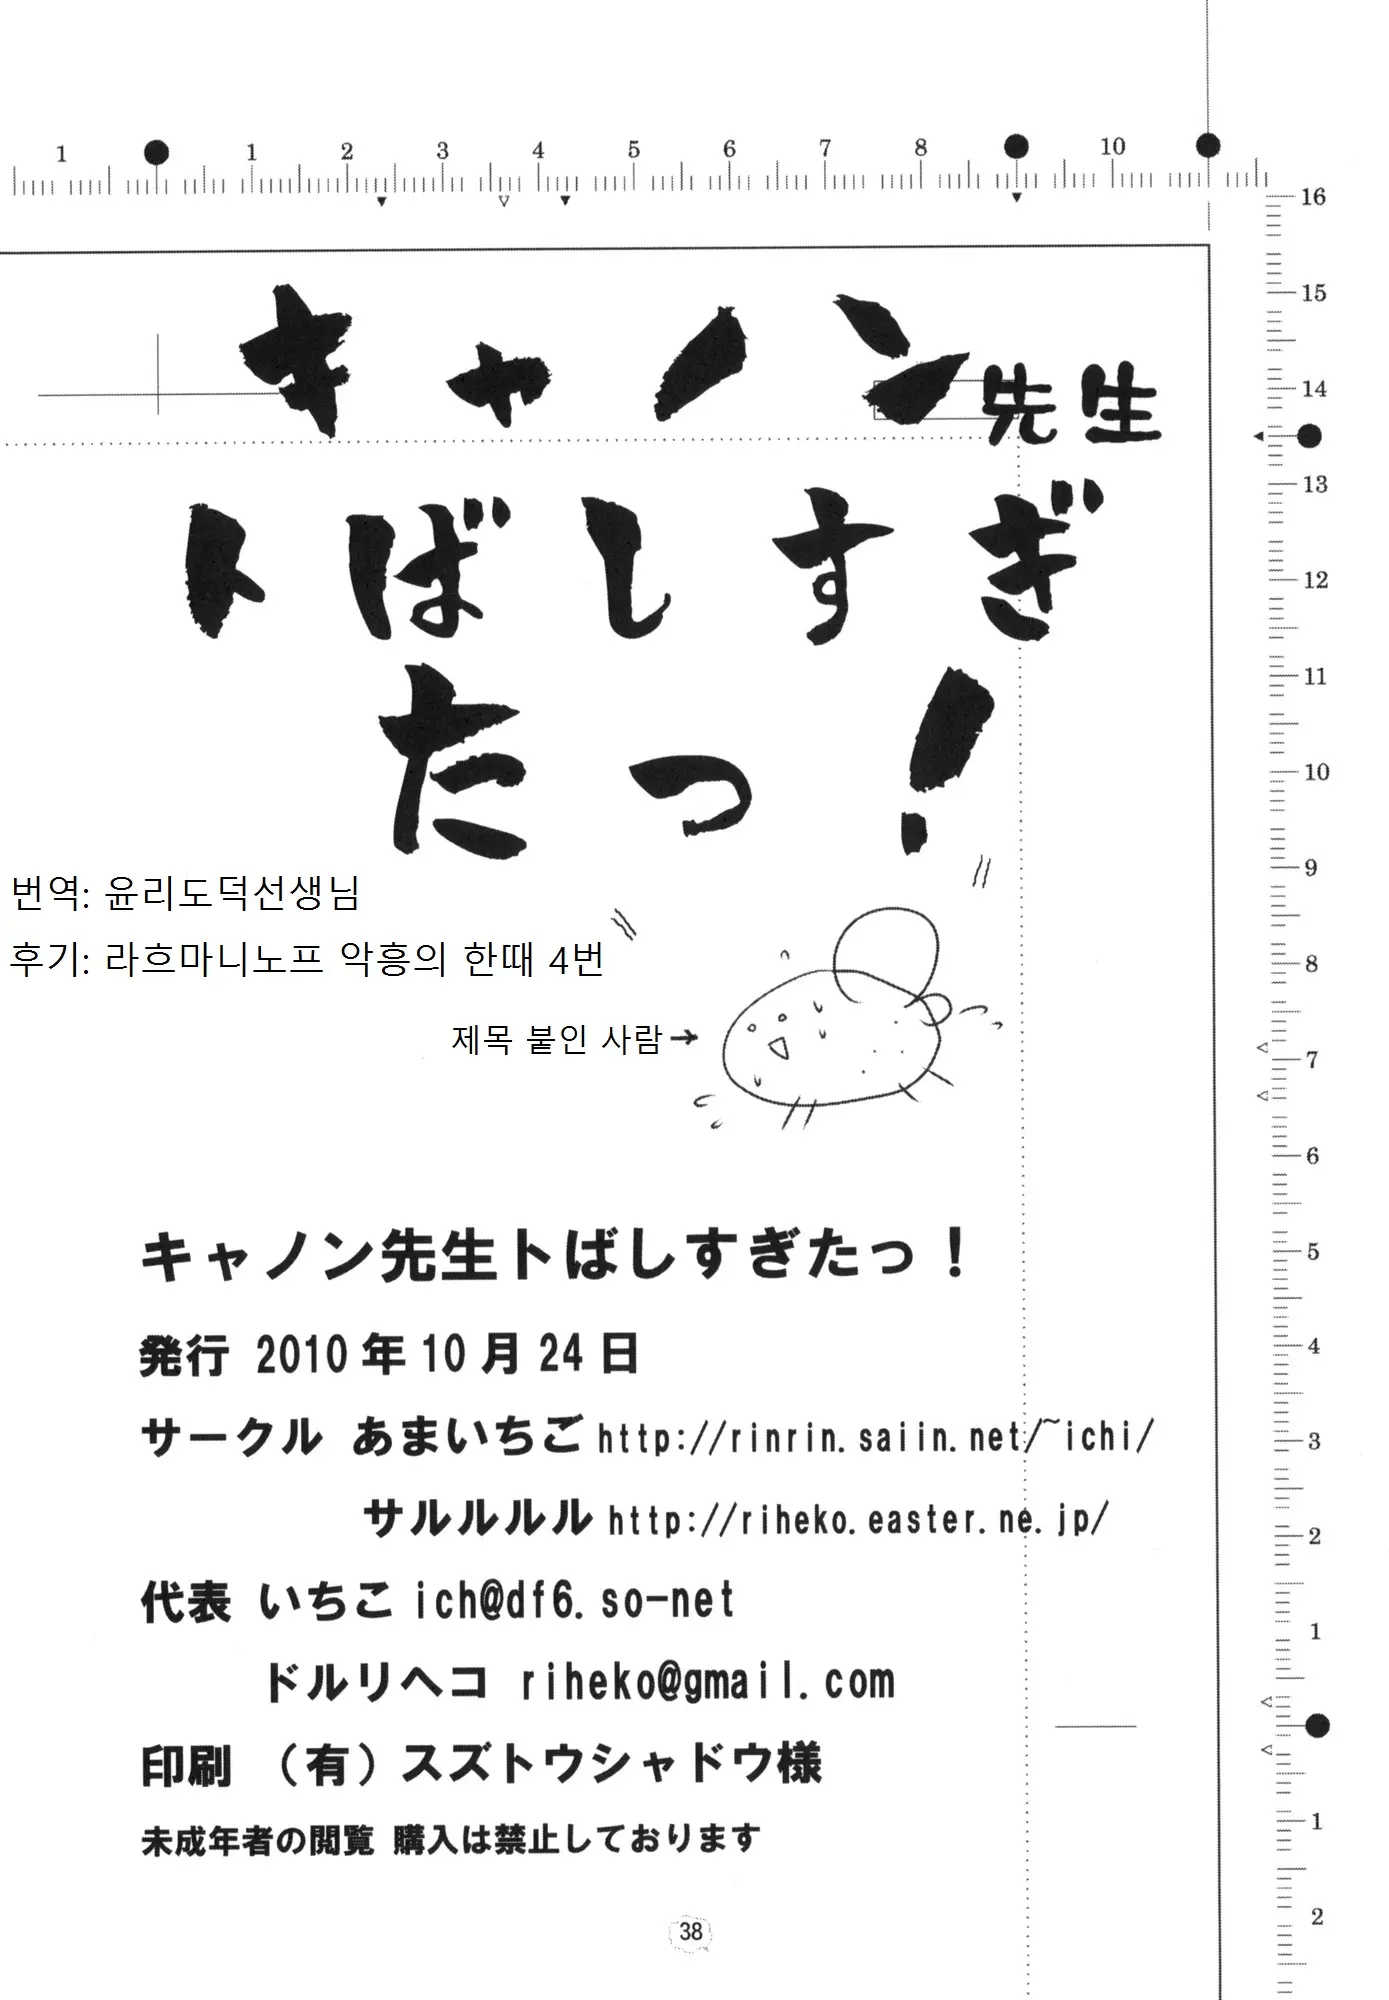 1 1 2 3 4 5 6 7 8 10
16
15
キャノン先生
14
13
トばしすぎ
12
11
たっ！
10
9
번역: 윤리도덕선생님
후기: 라흐마니노프 악흥의 한때 4번
8
제목 붙인 사람→
7
6
キャノン先生トばしすぎたっ！
5
発行 2010年10月24日
4
サークル あまいちご http://rinrin.saiin.net/~ichi/
3
サルルルル http://riheko.easter.ne.jp/
2
代表 いちこ ich@df6.so-net
1
ドルリヘコ riheko@gmail.com
印刷 （有）スズトウシャドウ様
1
未成年者の閲覧 購入は禁止しております
2
38